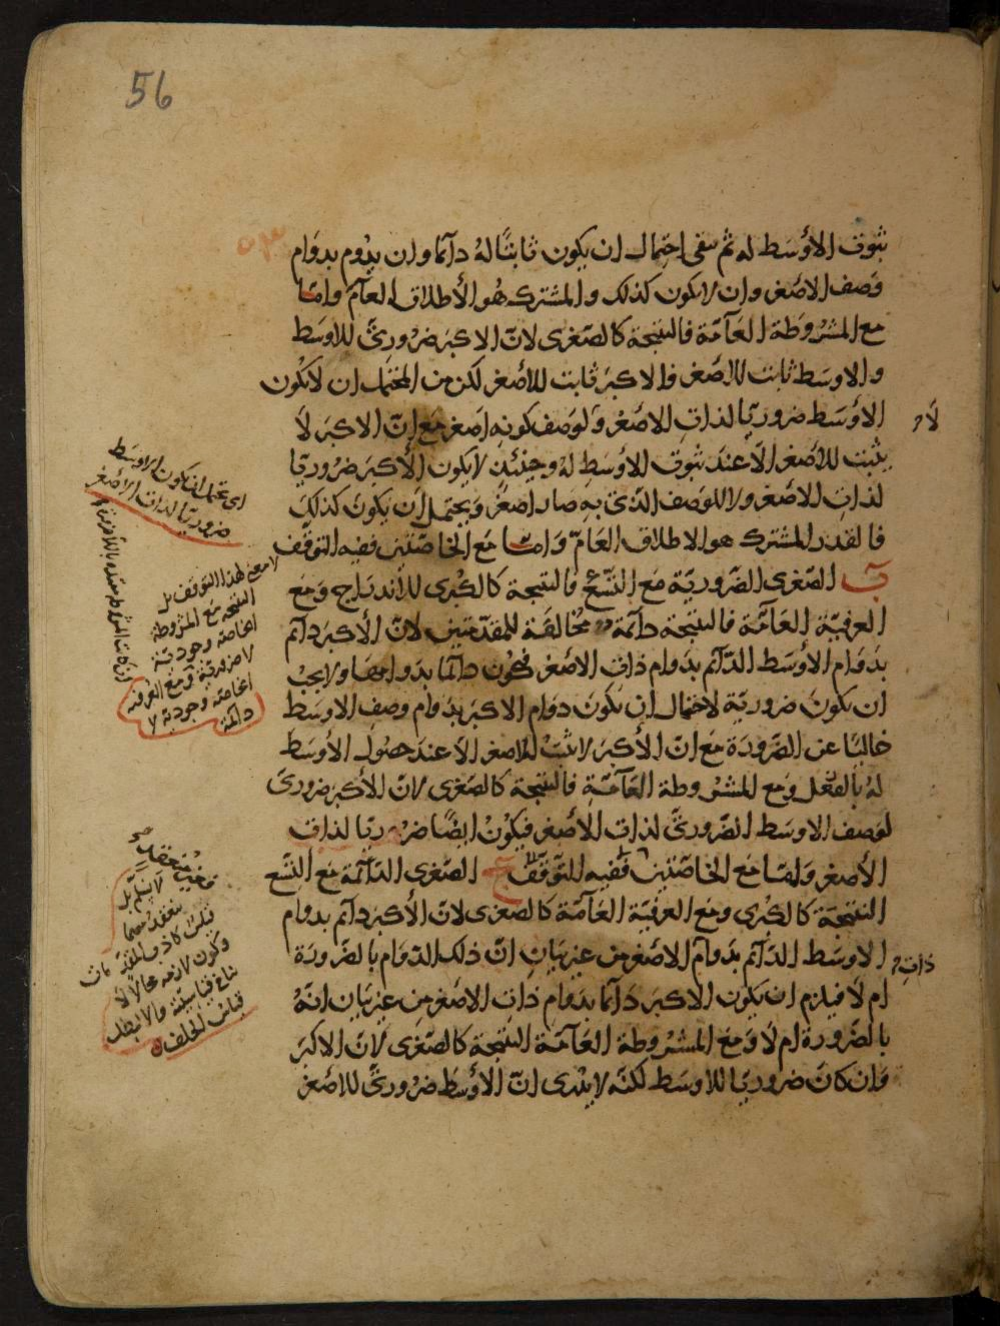 56
٥٣
ثبوت الأوسط له ثم بقى احتمال ان يكون ثابتًا لهُ دآئما وان يدوم بدوام
وصف الاصغر وان لا يكون كذلك والمشترك هُو الأطلاق العآم وامّا
مع المشروطة العَآمّة فالنتيجة كالصّغرى لانّ الاكبرَ ضرُورىٌّ للاوسَط
والاوسَط ثابت للاصغر فالاكبرَ ثابت للاصغر لكن من المحتمل ان لا يكُون
الاوُسَط ضروريّا لذات الاصغر ولا لوَصف كونه اصغر مَع انّ الاكبر لَا
يثبت للاصغر الّا عندَ ثبوت الاوسَط لهُ وحينئذٍ لا يكون الأكبَر ضرُوريّا
لذات الاصَغر ولا للوَصف الّذى بهِ صار اصغرَ وَيحتمل أن يكونَ كذلكَ
فالقدر المشترك هو الاطلاق العَامّ وَامّا مَع الخاصّتين ففيه التوقّف
ب الصّغرى الضّروريّة مَع التّسع فالنتيجة كالكُبرى للأندراج وَمَع
العرفيّة العَآمّة فالنتيجة دآئمة مخالفَة للمقدّمتين لانّ الأكبرَ دآئم
بدَوَام الأوسَط الدّآئم بدوام ذات الاصغر فيكون دائما بدوامها ولا يجب
ان يكونَ ضروريّة لاحتمال ان يكُونَ دوام الاكبر بدوام وصف الاوسَط
خاليًا عن الضّرورة مَع انّ الأكبرَ لا يثبتُ للاصغر الّا عند حصُول الأوسَط
لهُ بالفعل ومع المشرُوطة العَآمّةِ فالنتيجة كالصّغرى لانّ الأكبر ضرورىّ
لوَصف الاوسَط الضّرورىّ لذات الأصغر فيكونُ ايضًا ضروريّا لذات
الأصغر وَامّا مَع الخاصّتين ففيه التّوقّف ج الصّغرى الدّآئمة مَع التّسع
النتيجَة كالكُبرى ومَع العرفيّة العَآمّة كالصّغرى لانّ الأكبرَ دآئم بدوام
الاوسَط الدّآئم بدَوام الاصغر من غير بَيان انّ ذلك الدّوَام بالضّرورَة
ام لَا فيلزم ان يكون الاكبر دَآئما بدَوام ذات الاصغر من غير بَيان انّهُ
بالضّرورة ام لَا وَمع المشرُوطة العَآمّة النتيجَة كالصّغرى لانّ الاكبَر
وان كانَ ضروريّا للاوسَط لكنّه لا يُدرى انّ الأوسَط ضرُورىٌّ للاصغر
لَا
ذات
اى يحتمل ان يكون الاوسط
ضروريّا لذات الاصغر
لا معنى لهذا التوقف بل
النتيجه مع المشروطة
الخاصة وجوديّة
لا ضروريّة ومع العرفيه
الخاصة وجوديّة لا
دائمة
قياس الخلف